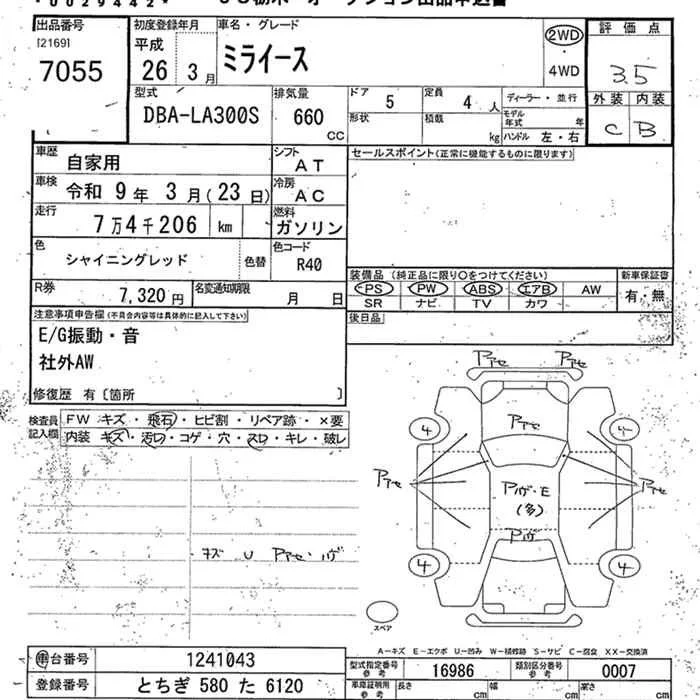 *0029442*
出品番号
[2169]
7055
初度登録年月
平成
26年 3月
車名・グレード
ミライース
2WD
・
4WD
評価点
3.5
型式
DBA-LA300S
排気量
660
CC
ドア 5
定員 4人
形状
積載 kg
ディーラー・並行
モデル年式 年
ハンドル 左・右
外装 内装
C B
車歴 自家用
シフト AT
車検 令和 9年 3月(23日)
冷房 AC
走行 7万4千206 km
燃料 ガソリン
色 シャイニングレッド
色替
色コード R40
R券 7,320円
名変通知期限 月 日
セールスポイント(正常に機能するものに限ります)
装備品(純正品に限り○をつけてください)
新車保証書
PS PW ABS エアB AW
有・無
SR ナビ TV カワ
後日品
注意事項申告欄(不具合内容等は具体的に記入して下さい)
E/G振動・音
社外AW
修復歴 有〔箇所 〕
検査員記入欄
FW キズ・飛石・ヒビ割・リペア跡・×要
内装 キズ・汚れ・コゲ・穴・スレ・キレ・破レ
キズ U Pアセ・ハゲ
Pアセ Pアセ
Pアセ
4 4
Pアセ Pアセ
Pハゲ・E
(多)
Pハゲ
4 4
スペア
A−キズ E−エクボ U−凹み W−補修跡 S−サビ C−腐食 XX−交換済
車台番号 1241043
型式指定番号参考 16986
類別区分番号参考 0007
登録番号 とちぎ 580 た 6120
車庫証明用参考
長さ cm
幅 cm
高さ cm